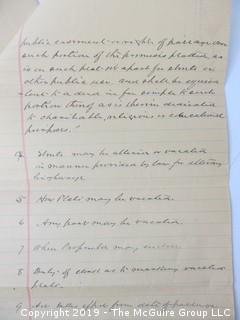 public easement or right of passage over
such portion of the premises platted as
is on such plat set apart for streets or
other public use, and shall be equiva
lent to a deed in fee simple to such
portion thereof as is therein dedicated
to charitable, religious or educational
purposes."
4 Streets may be altered or vacated
in manner provided by law for altering
highways
5 How Plats may be vacated
6 Any part may be vacated
7 When Proprietor may enclose
8 Duty of clerk as to marking vacated
plats.
9 Act takes effect from date of passage
Copyright 2019 - The McGuire Group LLC